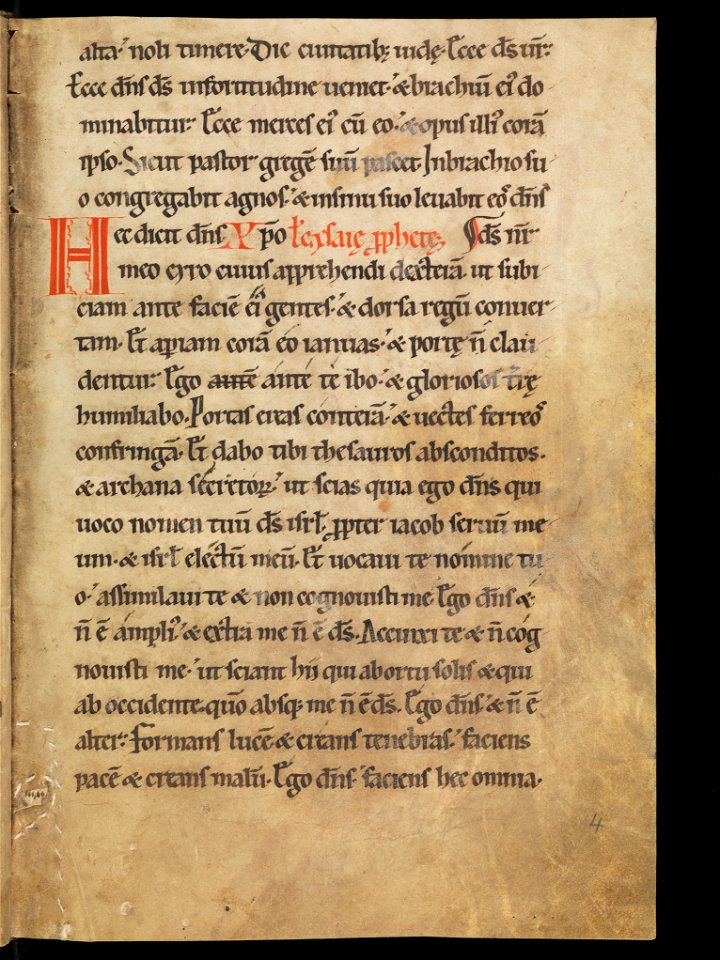 alta noli timere. Dic ciuitatibꝫ iudę. Ecce ds̄ nr̄.
Ecce dn̄s ds̄ infortitudine ueniet. & brachiū ei᷒ do
minabitur. Ecce merces ei᷒ cū eo. & opus illi᷒ corā
ipso. Sicut pastor gregē suū pascet Inbrachio su
o congregabit agnos. & insinu suo leuabit eo᷒ dn̄s
Hec dicit dn̄s Xp̄o Lc̄ esaię ꝓphetę ds̄ nr̄
meo cyro cuius apprehendi dexterā. ut subi
ciam ante faciē ei᷒ gentes. & dorsa regū conuer
tam. Et aperiam corā eo ianuas. & portę n̄ clau
dentur. Ego ante te ibo. & gloriosos tr̄rę
humiliabo. Portas ereas conterā. & uectes ferreo᷒
confringā. Et dabo tibi thesauros absconditos.
& archana secretoꝝ. ut scias quia ego dn̄s qui
uoco nomen tuū ds̄ isrl̄. ꝓpter iacob seruū me
um. & isrl̄ electū meū. Et uocaui te nomine tu
o. assimilaui te & non cognouisti me. Ego dn̄s &
n̄ ē ampli᷒. & extra me n̄ ē ds̄. Accinxi te & n̄ cog
nouisti me. ut sciant hii qui abortu solis & qui
ab occidente. qūo absqꝫ me n̄ ē ds̄. Ego dn̄s & n̄ ē
alter. Formans lucē & creans tenebras. faciens
pacē & creans malū. Ego dn̄s faciens hec omnia.
4